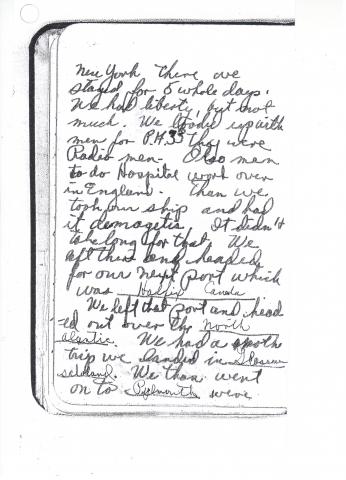 New York There we
stayed for 5 whole days.
We had liberty, but not
much. We up with
men for they were
Radio men. Also men
to do Hospital work over
in England. Than we
took our ship and had
it demagetis It didn't
take long for that. We
left there and headed
for our next port which
was Halifix Canada
We left that port and head
-ed out over the North
alantic. We had a smooth
trip we landed in
We than went
on to were